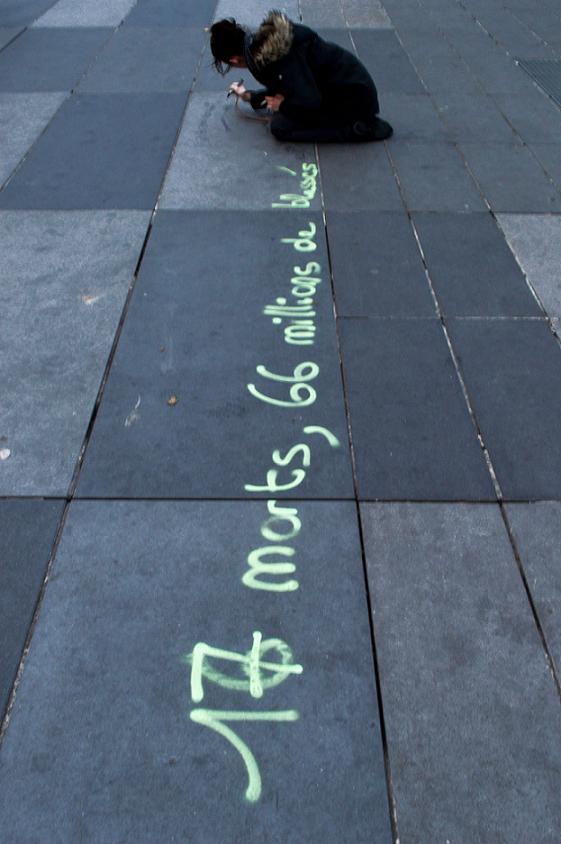 17 morts, 66 millions de blessés